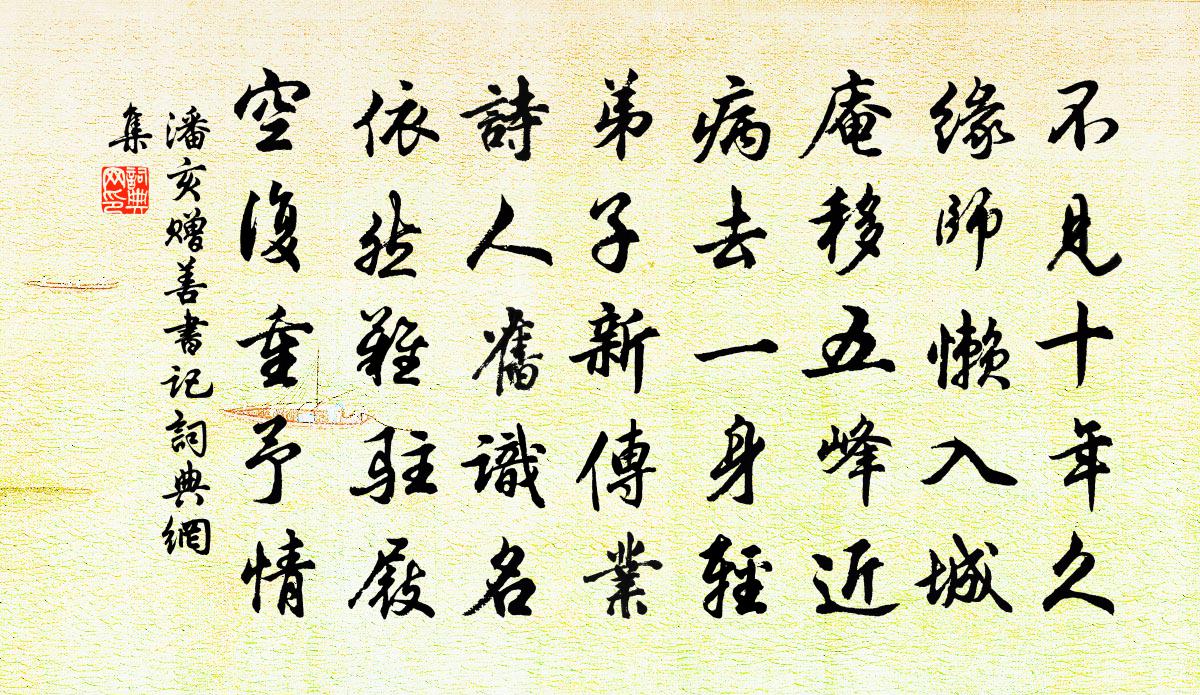 不見十年久
緣師懶入城
庵移五峰近
病去一身輕
弟子新傳業
詩人舊識名
依然難駐屐
空復重予情
潘亥贈善書記詞典網
集
詞典网印